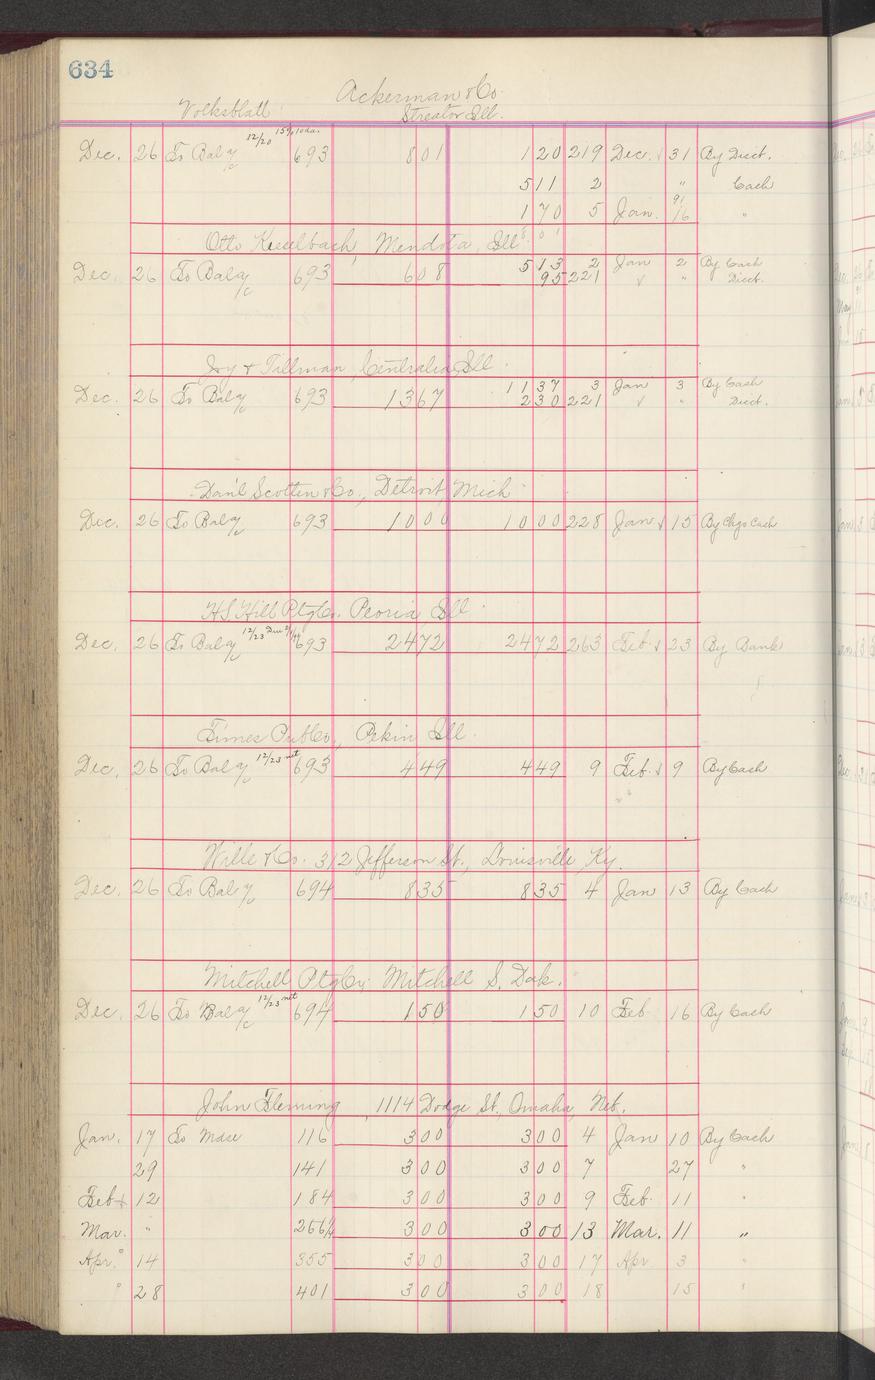 634
Ackerman & Co.
Volksblatt Streator Ill.
12/20 15% 10 da.
Dec. 26 To Bal a/c 693 801 120 219 Dec. 31 By Disct.
511 2 " Cash
170 5 Jan. 16 "
Otto Kieselbach, Mendota, Ill.
Dec. 26 To Bal a/c 693 608 513 2 Jan 2 By Cash
95 221 " Disct.
Ivy & Tillman, Centralia, Ill.
Dec. 26 To Bal a/c 693 1367 1137 3 Jan 3 By Cash
230 221 " Disct.
Danl Scotten & Co., Detroit, Mich
Dec. 26 To Bal a/c 693 1000 1000 228 Jan 15 By Chgo Cash
HS Hill Ptg Co. Peoria Ill.
12/23
Dec. 26 To Bal a/c 693 2472 2472 263 Feb. 23 By Bank
Times Pub Co., Pekin Ill.
12/23 net
Dec. 26 To Bal a/c 693 449 449 9 Feb. 9 By Cash
Wille & Co. 312 Jefferson St., Louisville, Ky.
Dec. 26 To Bal a/c 694 835 835 4 Jan 13 By Cash
Mitchell Ptg Co., Mitchell S. Dak.
12/23 net
Dec. 26 To Bal a/c 694 150 150 10 Feb. 16 By Cash
John Fleming, 1114 Dodge St., Omaha, Neb.
Jan. 17 To Mdse 116 300 300 4 Jan 10 By Cash
29 141 300 300 7 27 "
Feb 12 184 300 300 9 Feb. 11 "
Mar. " 266 300 300 13 Mar. 11 "
Apr. 14 355 300 300 17 Apr 3 "
" 28 401 300 300 18 15 "